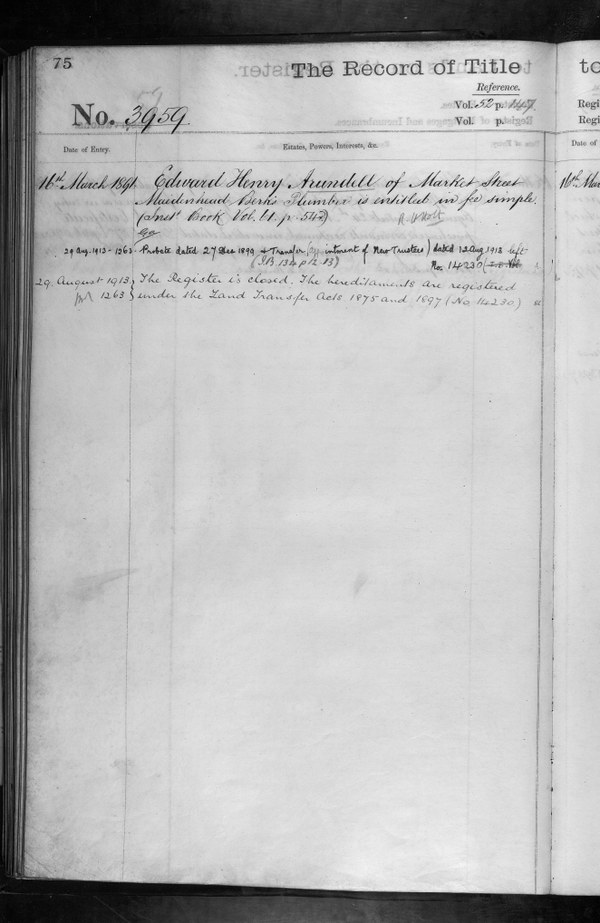 75
The Record of Title
Reference.
No. 3959.
Vol. 52 p. 147.
Vol. p.
Date of Entry.
Estates, Powers, Interests, &c.
16th March 1891 Edward Henry Arundell of Market Street
Maidenhead Berks Plumber is entitled in fee simple.
(Inst. Book Vol. 41 p. 542)
29 Aug. 1913 - 1263 Probate dated 27 Dec 1899 & Transfer (appointment of New Trustees) dated 12 Aug 1913 left
(I.B. 134 p 12. 13) No. 14230
29. August 1913 The Register is closed. The hereditaments are registered
1263 under the Land Transfer Acts 1875 and 1897 (No. 14230)
to
Regi
Regi
Date of
16th Mar